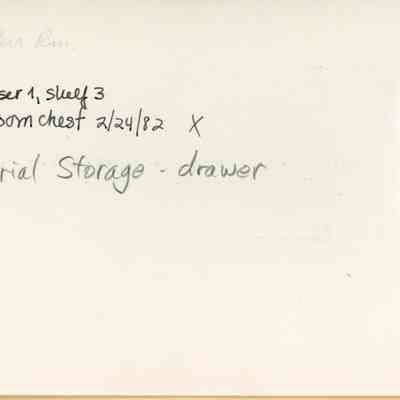 ser 1, shelf 3
oom chest 2/24/82 X
rial Storage - drawer